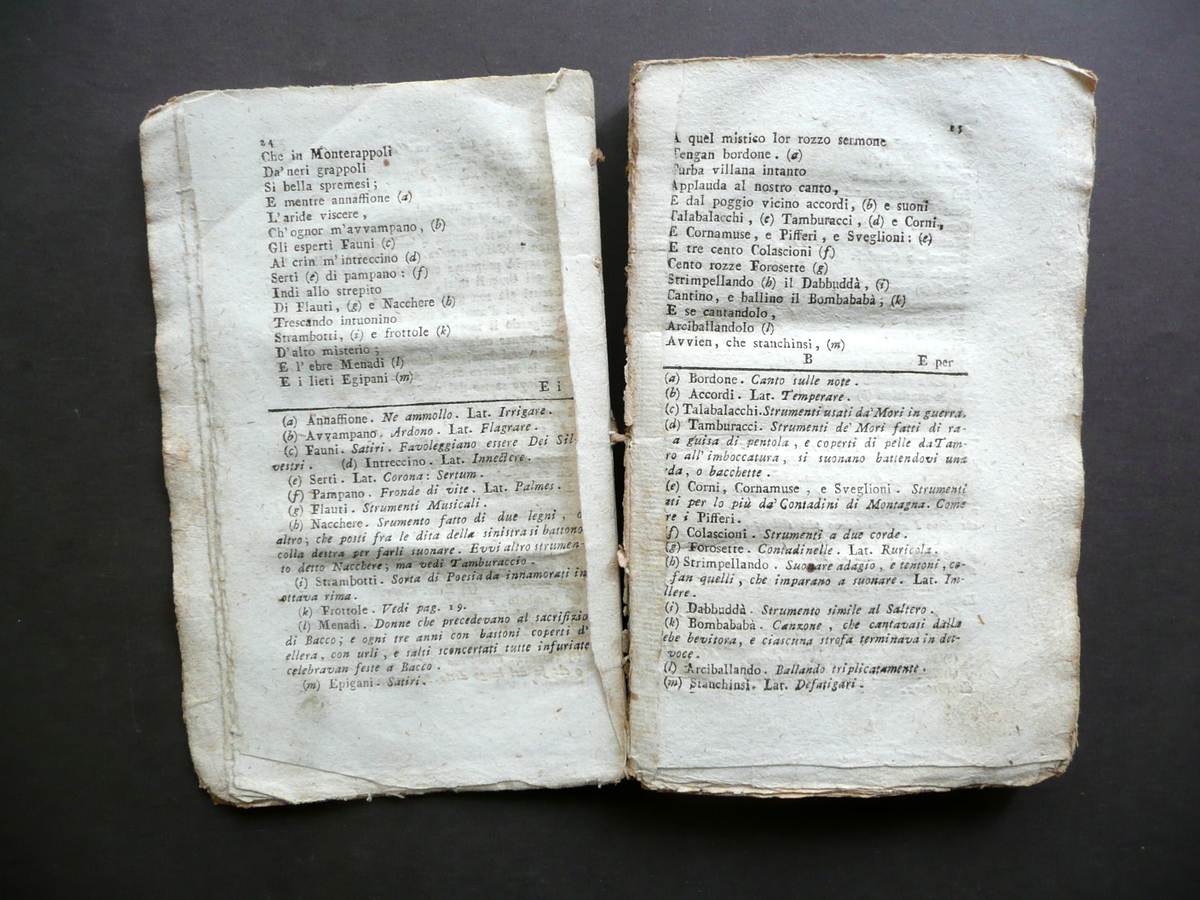 24
Che in Monterappoli
Da' neri grappoli
Si bella spremesi;
E mentre annaffione (a)
L'aride viscere,
Ch'ognor m'avvampano, (b)
Gli esperti Fauni (c)
Al crin m'intreccino (d)
Serti (e) di pampano: (f)
Indi allo strepito
Di Flauti, (g) e Nacchere (h)
Trescando intuonino
Strambotti, (i) e frottole (k)
D'alto misterio;
E l'ebre Menadi (l)
E i lieti Egipani (m)
E i
(a) Annaffione. Ne ammollo. Lat. Irrigare.
(b) Avvampano. Ardono. Lat. Flagrare.
(c) Fauni. Satiri. Favoleggiano essere Dei Sil-
vestri. (d) Intreccino. Lat. Innectere.
(e) Serti. Lat. Corona: Sertum.
(f) Pampano. Fronde di vite. Lat. Palmes.
(g) Flauti. Strumenti Musicali.
(h) Nacchere. Srumento fatto di due legni, o
altro; che posti fra le dita della sinistra si battono
colla destra per farli suonare. Evvi altro strumen-
to detto Nacchere; ma vedi Tamburaccio.
(i) Strambotti. Sorta di Poesia da innamorati in
ottava rima.
(k) Frottole. Vedi pag. 19.
(l) Menadi. Donne che precedevano al sacrifizio
di Bacco; e ogni tre anni con bastoni coperti d'
ellera, con urli, e salti sconcertati tutte infuriate
celebravan feste a Bacco.
(m) Epigani. Satiri.
25
A quel mistico lor rozzo sermone
Tengan bordone. (a)
Turba villana intanto
Applauda al nostro canto,
E dal poggio vicino accordi, (b) e suoni
Talabalacchi, (c) Tamburacci, (d) e Corni,
E Cornamuse, e Pifferi, e Sveglioni: (e)
E tre cento Colascioni (f)
Cento rozze Forosette (g)
Strimpellando (h) il Dabbuddà, (i)
Cantino, e ballino il Bombababà; (k)
E se cantandolo,
Arciballandolo (l)
Avvien, che stanchinsi, (m)
B E per
(a) Bordone. Canto sulle note.
(b) Accordi. Lat. Temperare.
(c) Talabalacchi. Strumenti usati da' Mori in guerra.
(d) Tamburacci. Strumenti de' Mori fatti di ra-
a guisa di pentola, e coperti di pelle da Tam-
ro all'imboccatura, si suonano battendovi una
da, o bacchette.
(e) Corni, Cornamuse, e Sveglioni. Strumenti
ati per lo più da' Contadini di Montagna. Come
re i Pifferi.
(f) Colascioni. Strumenti a due corde.
(g) Forosette. Contadinelle. Lat. Ruricola.
(h) Strimpellando. Suonare adagio, e tentoni, co-
fan quelli, che imparano a suonare. Lat. Im-
llere.
(i) Dabbuddà. Strumento simile al Saltero.
(k) Bombababà. Canzone, che cantavasi dalla
ebe bevitora, e ciascuna strofa terminava in det-
voce.
(l) Arciballando. Ballando triplicatamente.
(m) Stanchinsi. Lat. Defatigari.